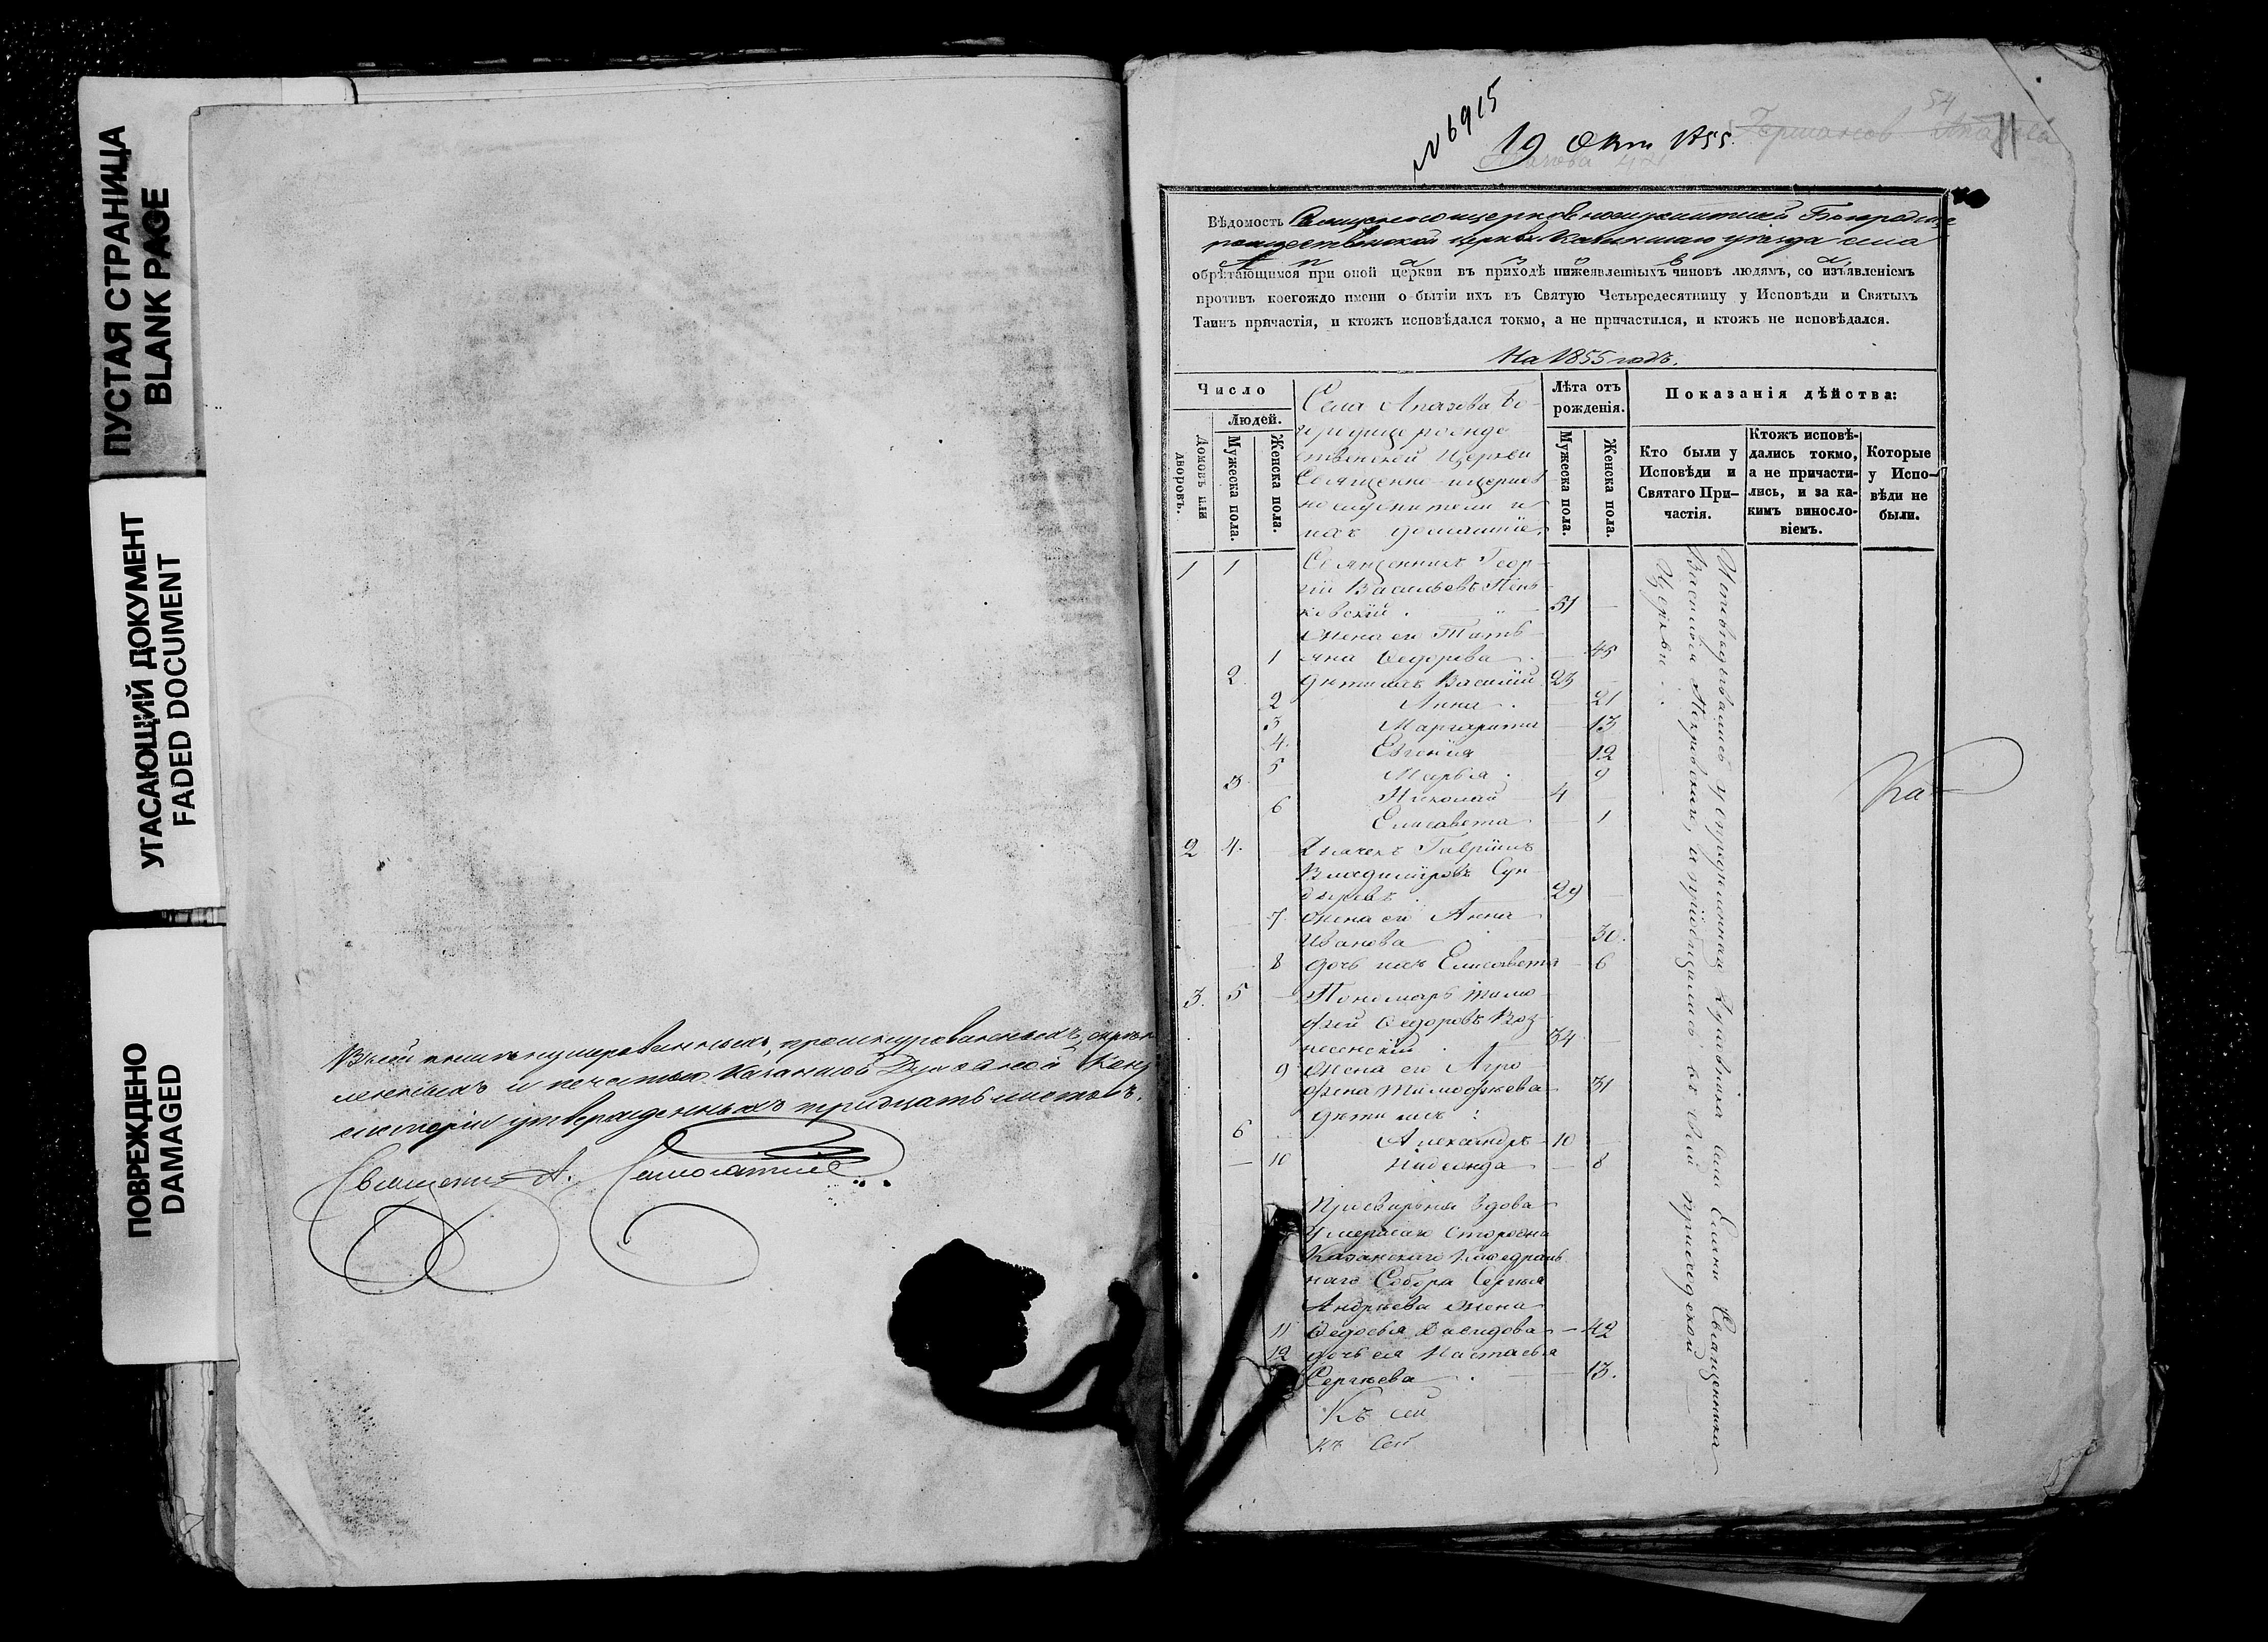 ПУСТАЯ СТРАНИЦА
BLANK PAGE
УГАСАЮЩИЙ ДОКУМЕНТ
FADED DOCUMENT
ПОВРЕЖДЕНО
DAMAGED
В сей книге нумерованныхъ, прошнурованныхъ, скреп
ленныхъ и печатью Казанской Духовной Кон
систоріи утвержденныхъ тридцать листовъ.
Священникъ А.
№ 6915
19 Окт 1855.
54
71
Вѣдомость Священноцерковнослужителей Богородице
рождественской церкви Казанскаго уѣзда села
А п а з о в а
обрѣтающимся при оной церкви въ приходѣ нижеявленныхъ чиновъ людямъ, со изъявленіемъ
противъ коегождо имени о бытіи ихъ въ Святую Четыредесятницу у Исповѣди и Святыхъ
Таинъ причастія, и ктожъ исповѣдался токмо, а не причастился, и ктожъ не исповѣдался.
На 1855 годъ.
Число
Людей.
Домовъ или дворовъ.
Мужеска пола.
Женска пола.
Села Апазова Бо-
городицерожде
ственской Церкви
Священно-церков
нослужители и
ихъ домашніе.
Лѣта отъ рожденія.
Мужеска пола.
Женска пола.
Показанія дѣйства:
Кто были у Исповѣди и Святаго При-частія.
Ктожъ исповѣ-дались токмо, а не причасти-лись, и за ка-кимъ винословіемъ.
Которые у Испо-вѣди не были.
1 1 Священникъ Геор-
гій Васильевъ Пень
ковскій 51
Жена его Тать-
1 яна Ѳедорова 45
2 дѣти ихъ Василій 23
2 Анна 21
3 Маргарита 13
4 Евгенія 12
5 Марья 9
3 Николай 4
6 Елисавета 1
2 4 Дьячекъ Гавріилъ
Владиміровъ Сун
дыревъ 29
7 жена его Анна
Иванова 30.
8 дочь ихъ Елисавета 6
3. 5 Пономарь Тимо
фей Ѳедоровъ Воз
несенскій 34
9 Жена его Агро
фена Тимофѣева 31
дѣти ихъ:
6 Александръ 10
10 Надежда 8
Просвирня вдова
умершаго Сторожа
Казанскаго Каѳедраль
наго Собора Сергѣя
Андреева жена
11 Ѳедосья Давидова 42
12 дочь ея Настасья
Сергѣева 13.
Къ сей
къ сей
Исповѣдывались у Священника
Василья и пріобщались во сей приходской
Церкви